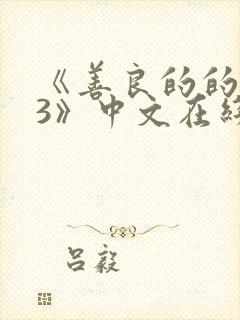 《善良的的
3》中文在线
吕毅